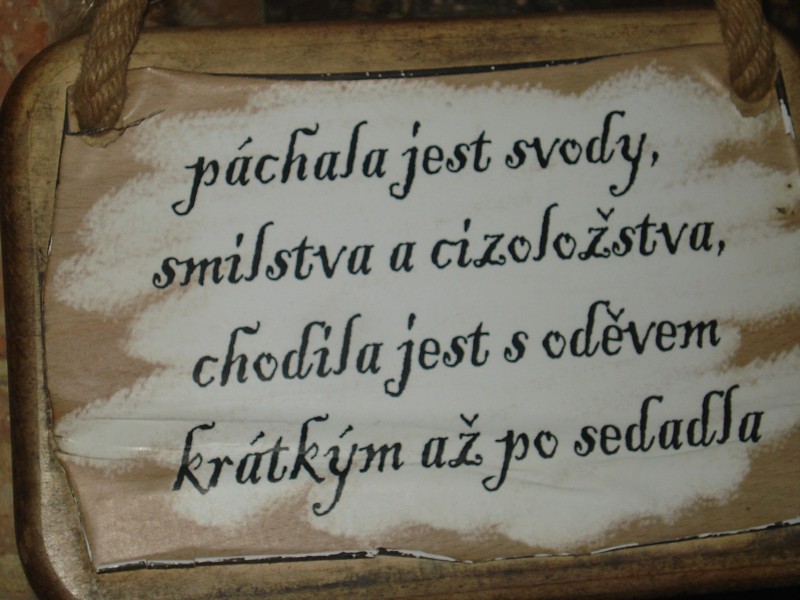 páchala jest svody,
smilstva a cizoložstva,
chodila jest s oděvem
krátkým až po sedadla